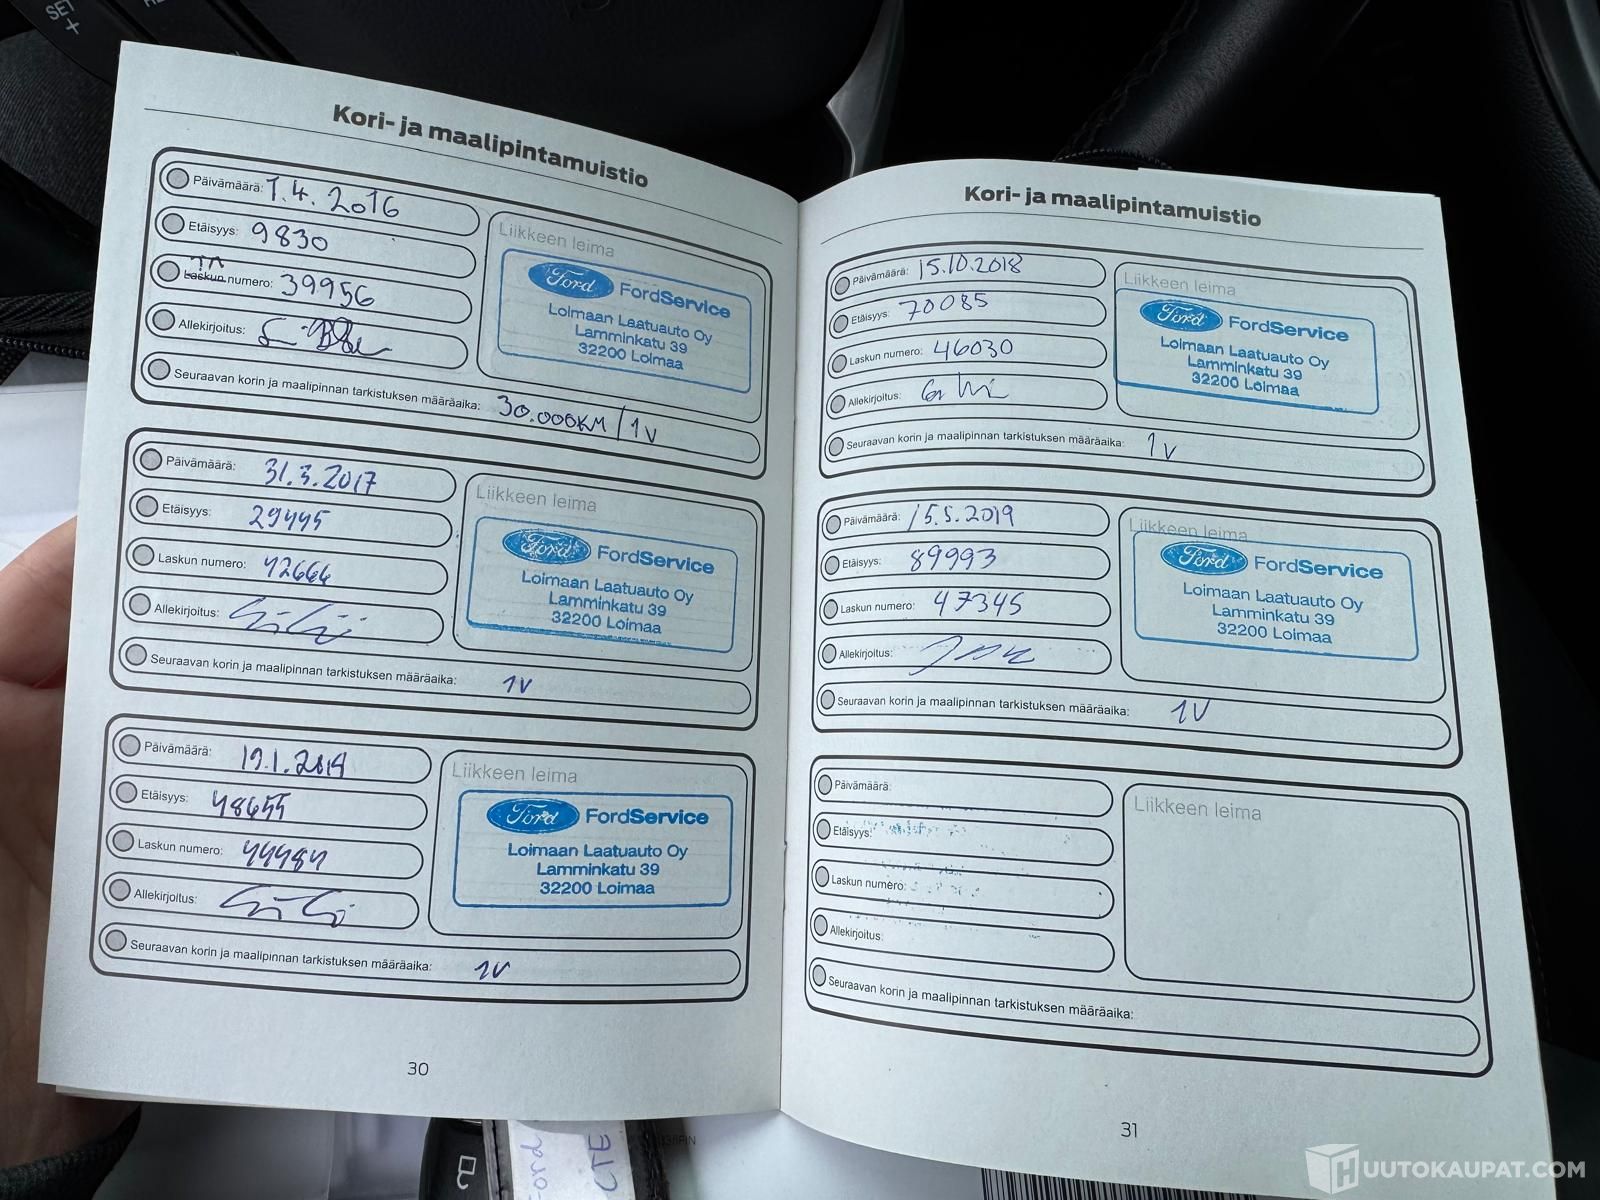 SET
+
Kori- ja maalipintamuistio
Päivämäärä: 1.4. 2016
Etäisyys: 9830
Laskun numero: 39956
Allekirjoitus:
Seuraavan korin ja maalipinnan tarkistuksen määräaika: 30.000KM / 1V
Liikkeen leima
Ford FordService
Loimaan Laatuauto Oy
Lamminkatu 39
32200 Loimaa
Päivämäärä: 31.3.2017
Etäisyys: 29445
Laskun numero: 42666
Allekirjoitus:
Seuraavan korin ja maalipinnan tarkistuksen määräaika: 1V
Liikkeen leima
Ford FordService
Loimaan Laatuauto Oy
Lamminkatu 39
32200 Loimaa
Päivämäärä:
Etäisyys: 48655
Laskun numero: 44484
Allekirjoitus:
Seuraavan korin ja maalipinnan tarkistuksen määräaika: 1V
Liikkeen leima
Ford FordService
Loimaan Laatuauto Oy
Lamminkatu 39
32200 Loimaa
30
Kori- ja maalipintamuistio
Päivämäärä: 15.10.2018
Etäisyys: 70085
Laskun numero: 46030
Allekirjoitus:
Seuraavan korin ja maalipinnan tarkistuksen määräaika: 1V
Liikkeen leima
Ford FordService
Loimaan Laatuauto Oy
Lamminkatu 39
32200 Loimaa
Päivämäärä: 15.5.2019
Etäisyys: 89993
Laskun numero: 47345
Allekirjoitus:
Seuraavan korin ja maalipinnan tarkistuksen määräaika: 1V
Liikkeen leima
Ford FordService
Loimaan Laatuauto Oy
Lamminkatu 39
32200 Loimaa
Päivämäärä:
Etäisyys:
Laskun numero:
Allekirjoitus:
Seuraavan korin ja maalipinnan tarkistuksen määräaika:
Liikkeen leima
31
HUUTOKAUPAT.COM